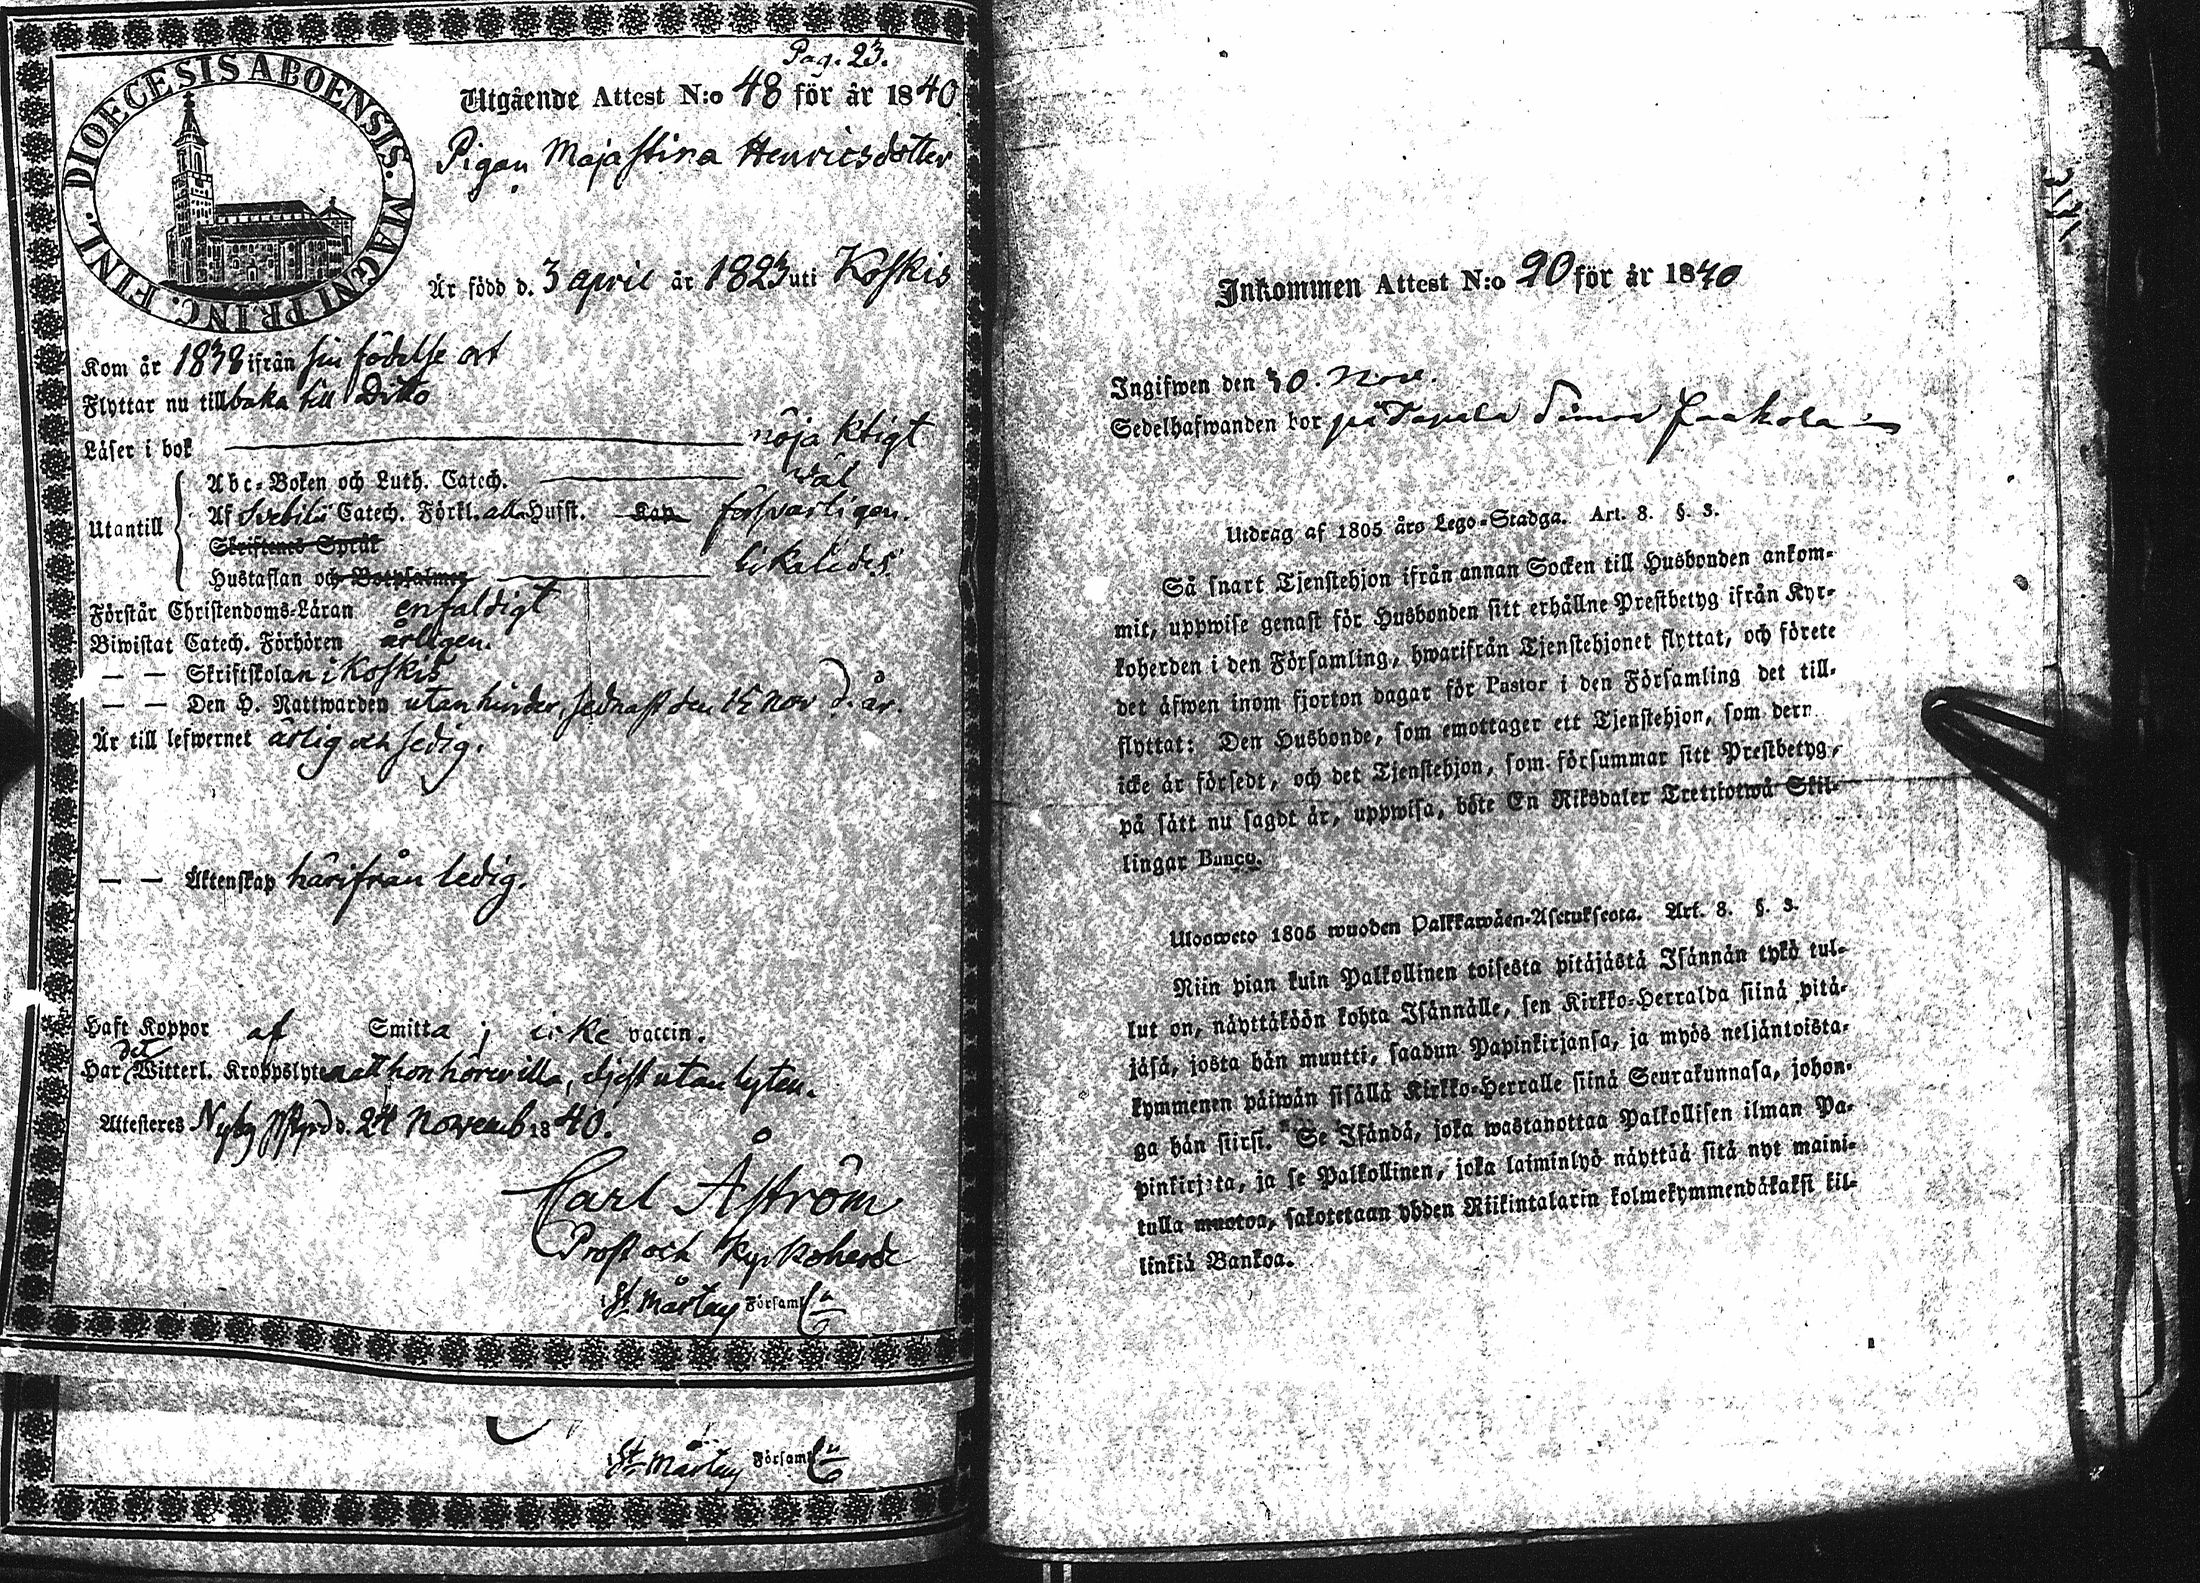 Pag. 23.
DIOECESIS ABOENSIS. MAGNI PRINC. FINL.
Utgående Attest N:o 48 för år 1840
Pigan Maja Stina Henricsdotter
Är född d. 3 april år 1823 uti Koskis
Kom år 1838 ifrån sin födelse ort
Flyttar nu tillbaka till Ditto
Läser i bok nöjaktigt
Utantill
Abc-Boken och Luth. Catech. wäl
Af Svebilii Catech. Förkl. alla Husst. Kap försvarligen.
Skriftenes Språk
Hustaflan och Botpsalmer likaledes.
Förstår Christendoms-Läran enfaldigt
Biwistat Catech. Förhören årligen.
— — Skriftskolan i Koskis
— — Den H. Nattwarden utan hinder, sednast den 15 nov d. år.
Är till lefwernet ärlig och sedig.
— — Äktenskap härifrån ledig.
Haft Koppor af Smitta; icke vaccin.
Har det Witterl. Kroppslyte att hon hörer illa, djest utan lyten.
Attesteres Nyby d. 24 Novemb 1840.
Carl Åström
Prost och Kyrkoherde
i St Mårtens Församl.
i St Mårtens Församl.
Inkommen Attest N:o 20 för år 1840
Ingifwen den 30. Nov.
Sedelhafwanden bor på
Utdrag af 1805 års Lego-Stadga. Art. 8. §. 3.
Så snart Tjenstehjon ifrån annan Socken till Husbonden ankom-
mit, uppwise genast för Husbonden sitt erhållne Prestbetyg ifrån Kyr-
koherden i den Församling, hwarifrån Tjenstehjonet flyttat, och förete
det äfwen inom fjorton dagar för Pastor i den Församling det till-
flyttat: Den Husbonde, som emottager ett Tjenstehjon, som dermed
icke är försedt, och det Tjenstehjon, som försummar sitt Prestbetyg,
på sätt nu sagdt är, uppwisa, böte En Riksdaler Trettiotwå Skil-
lingar Banco.
Ulosweto 1805 wuoden Palkkawäen-Asetuksesta. Art. 8. §. 3.
Niin pian kuin Palkollinen toisesta pitäjästä Isännän tykö tul-
lut on, näyttäköön kohta Isännälle, sen Kirkko-Herralda siinä pitä-
jäsä, josta hän muutti, saadun Papinkirjansa, ja myös neljäntoista-
kymmenen päiwän sisällä Kirkko-Herralle siinä Seurakunnasa, johon-
ga hän siirsi. Se Isändä, joka wastanottaa Palkollisen ilman Pa-
pinkirjata, ja se Palkollinen, joka laiminlyö näyttää sitä nyt maini-
tulla muotoa, sakotetaan yhden Riikintalarin kolmekymmendäkaksi kil-
linkiä Bankoa.